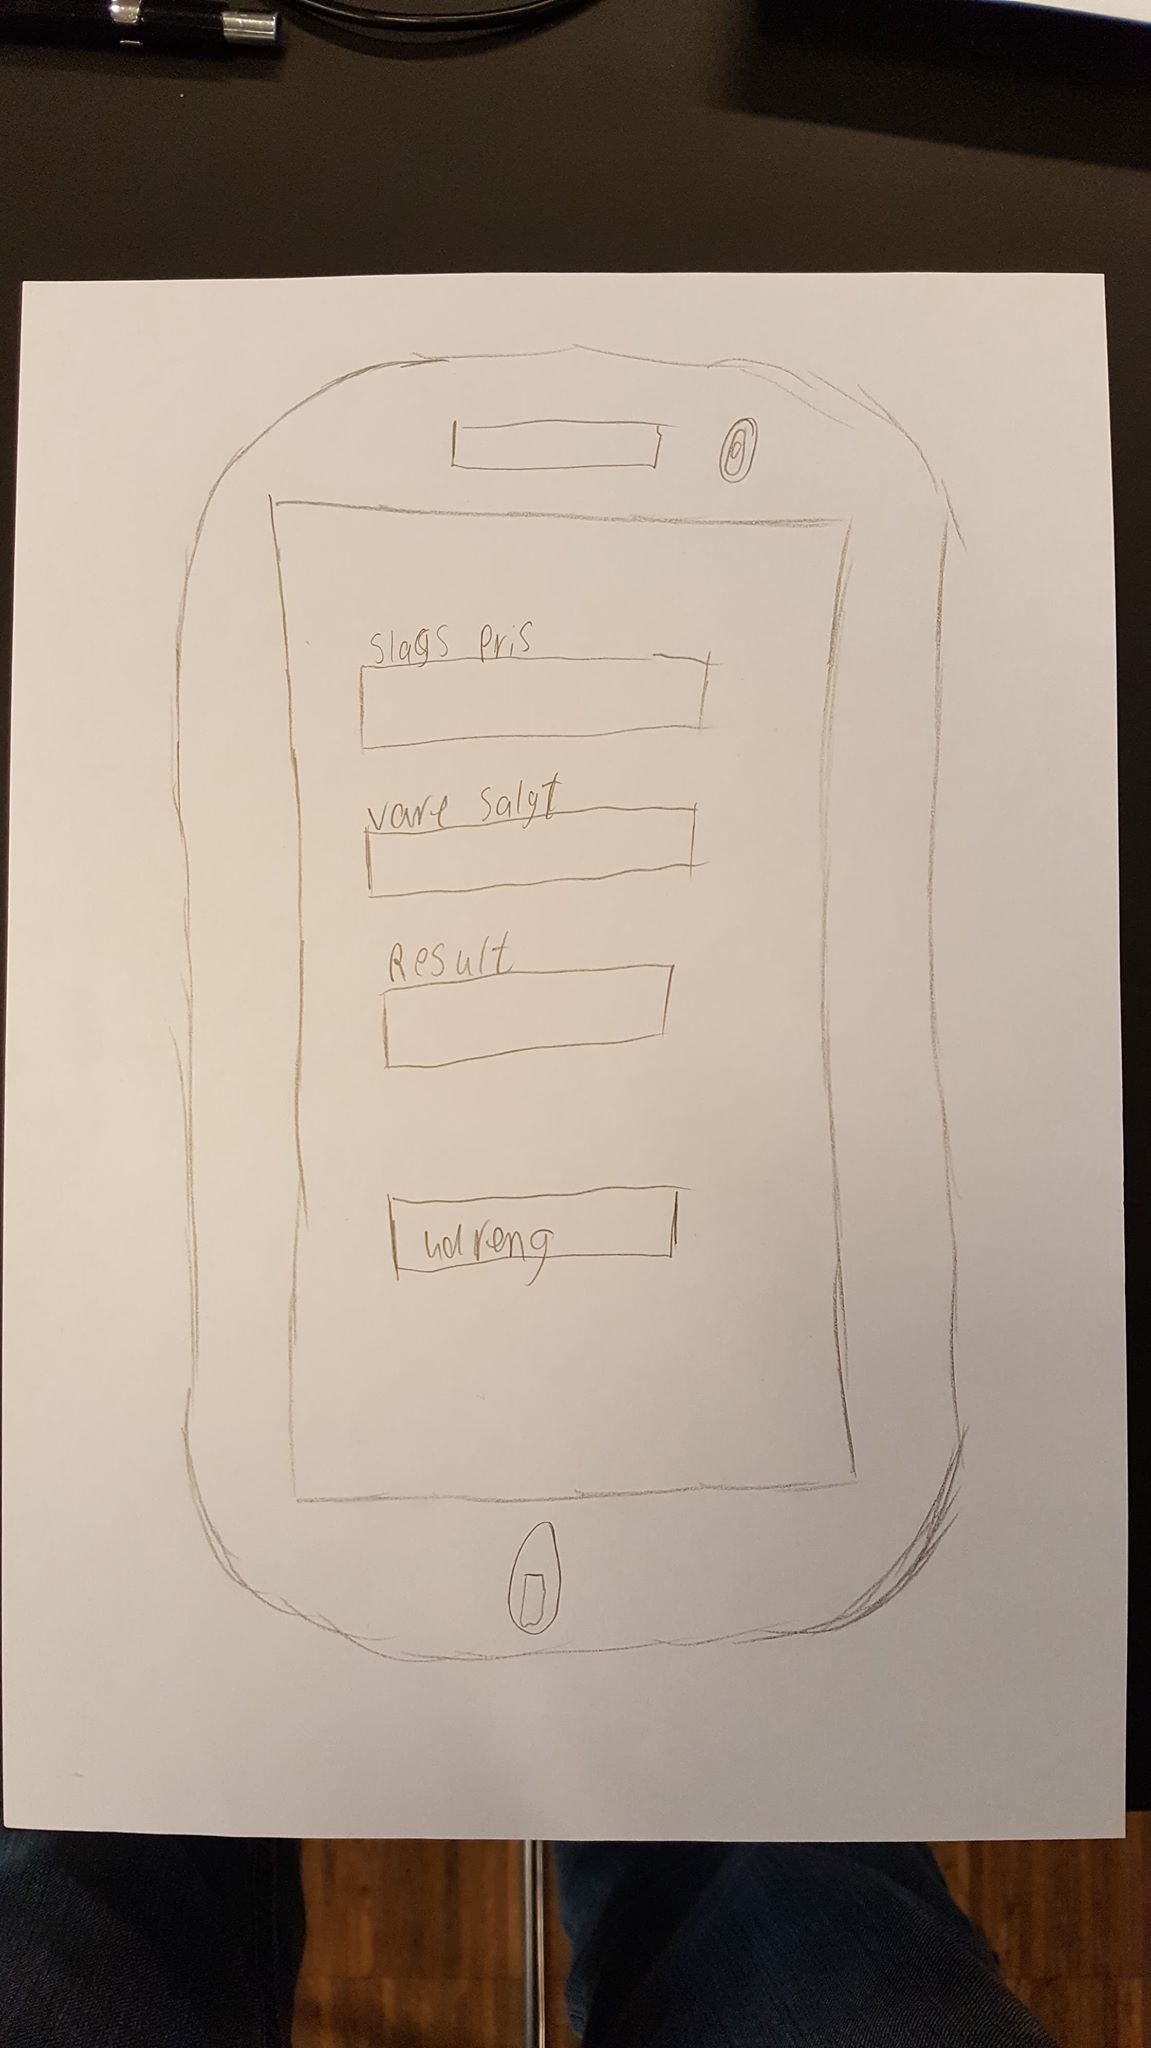 Slags pris
vare salgt
Result
udreng